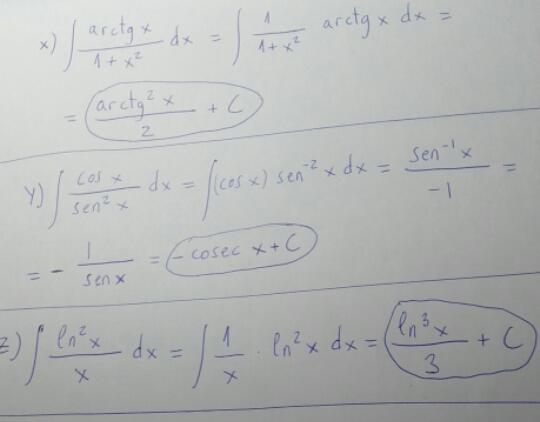 x) ∫ arctg x / 1 + x² dx = ∫ 1 / 1 + x² arctg x dx =
= arctg² x / 2 + C
y) ∫ cos x / sen² x dx = ∫ (cos x) sen⁻² x dx = sen⁻¹ x / -1 =
= - 1 / sen x = - cosec x + C
z) ∫ ln² x / x dx = ∫ 1 / x · ln² x dx = ln³ x / 3 + C